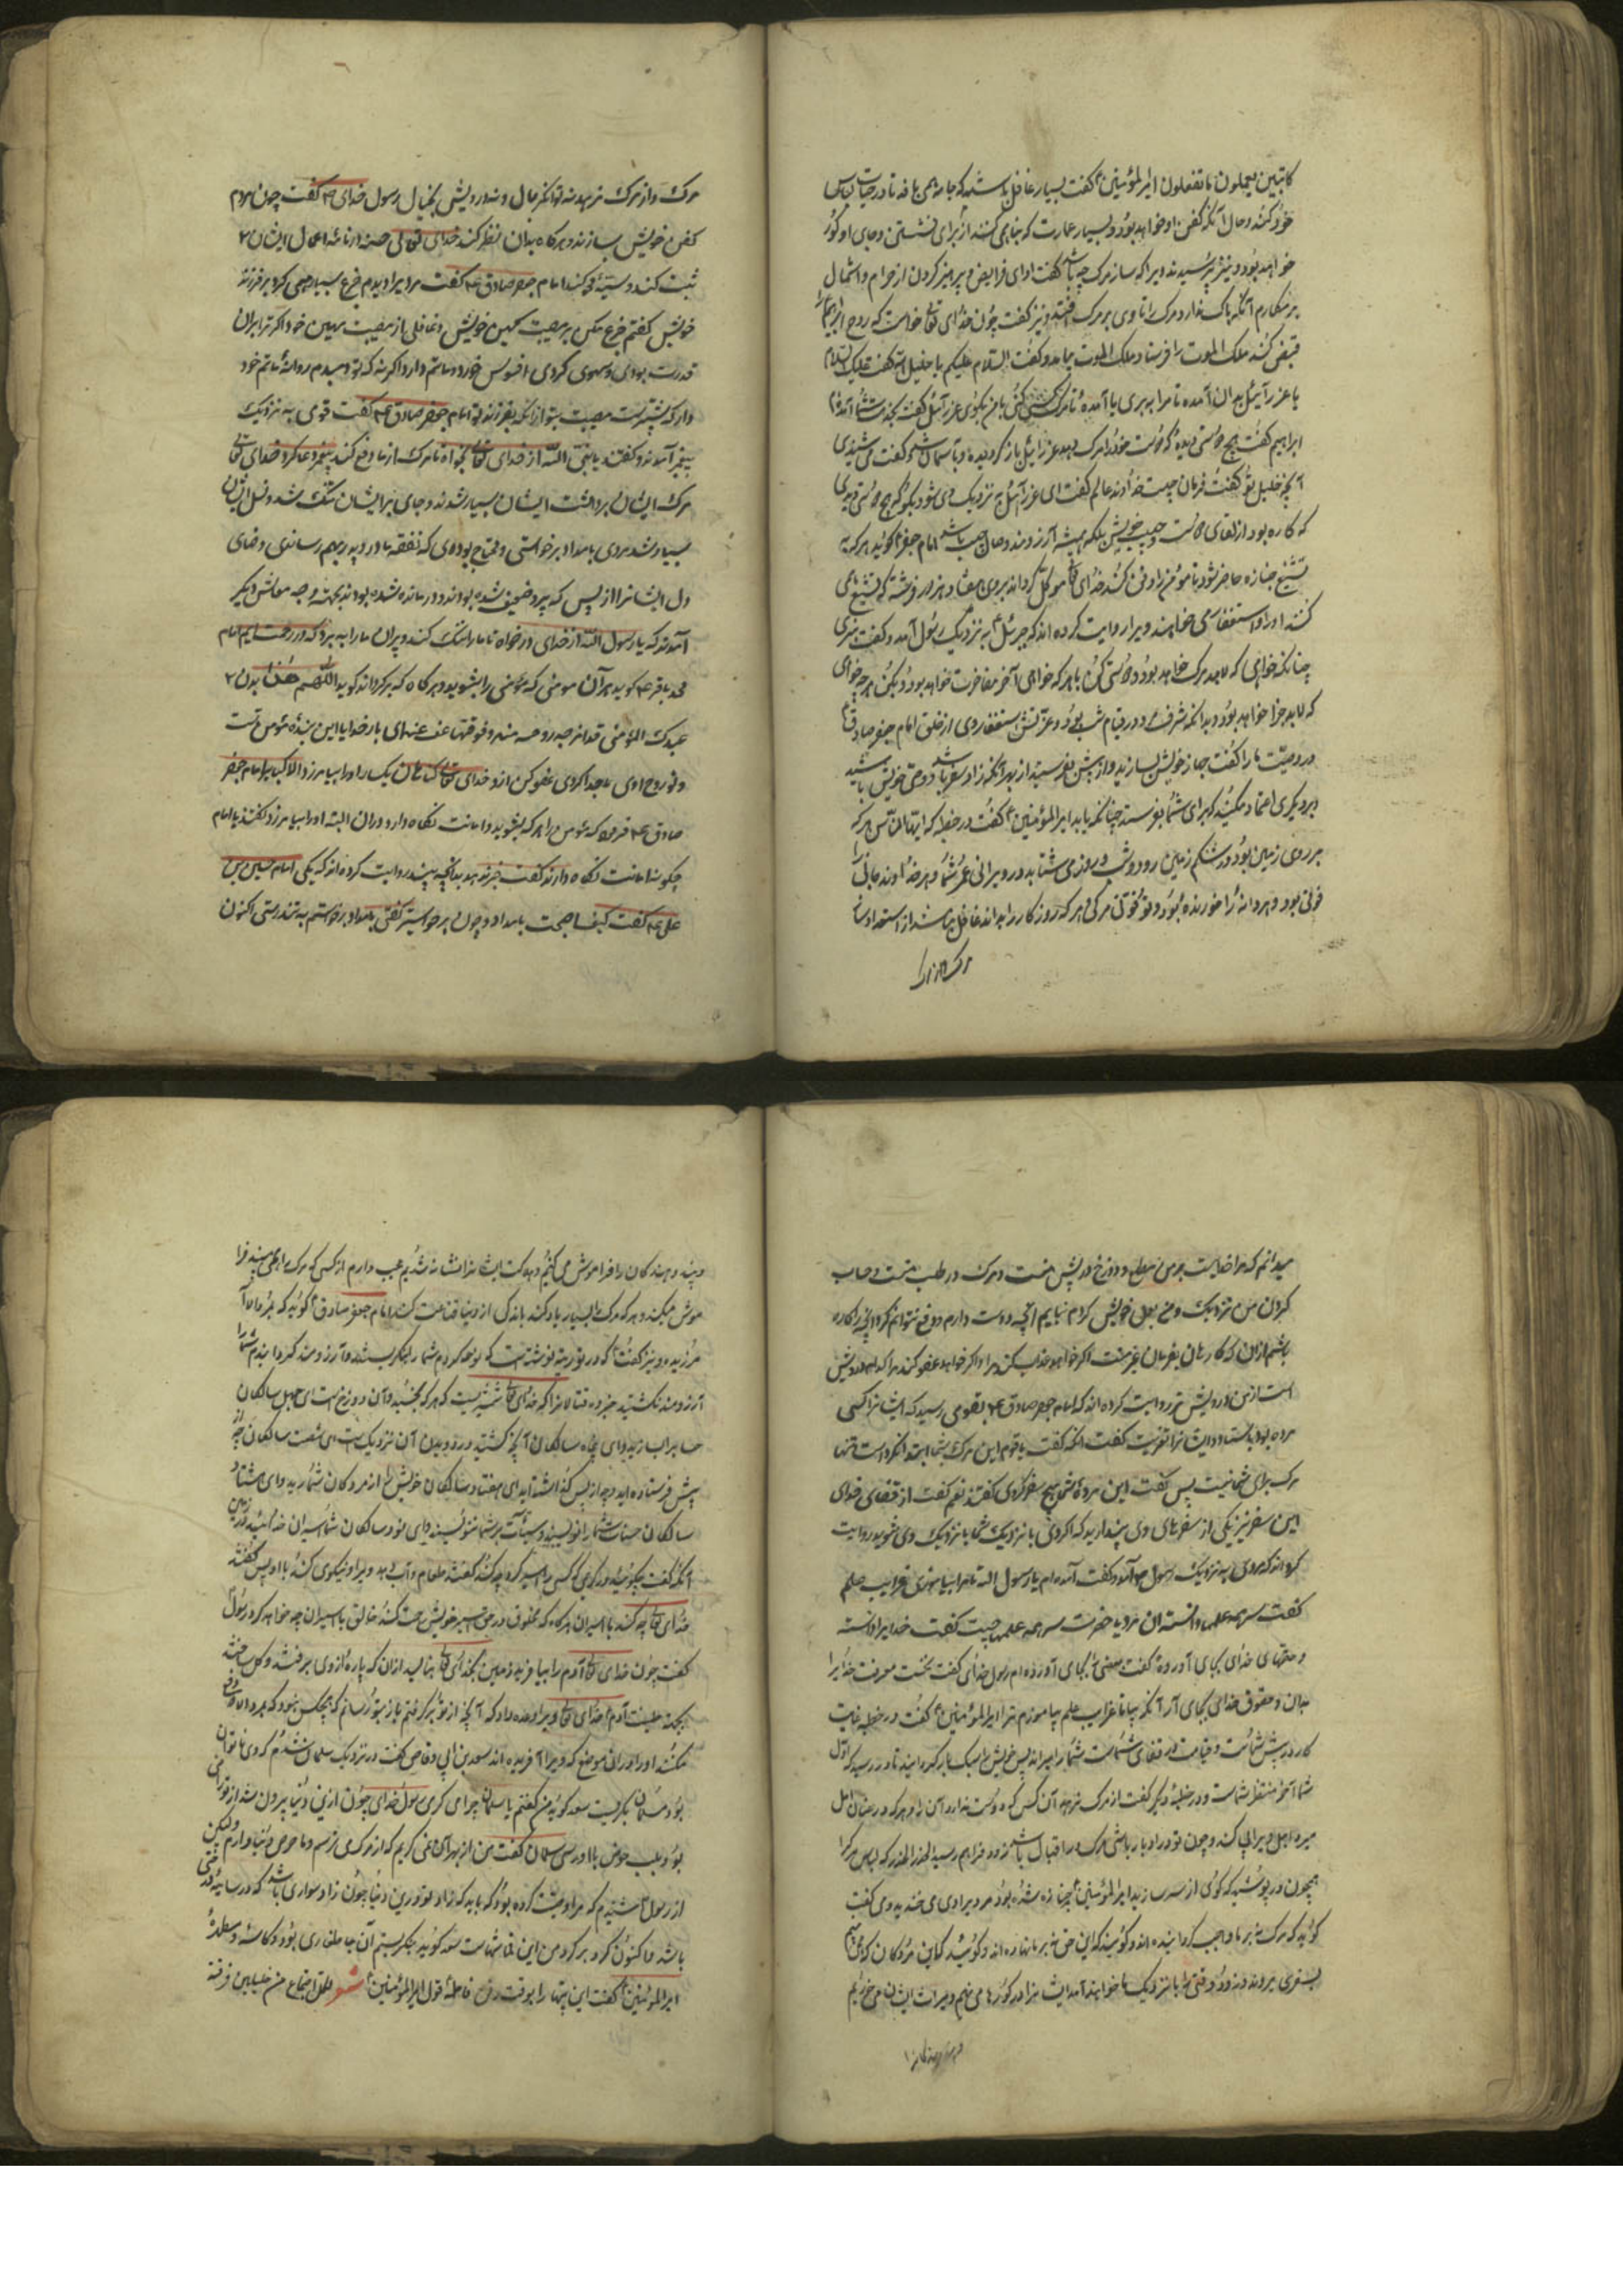 کاتبین یعلمون ما تفعلون امیرالمؤمنین گفت بسیار غافل باشد که جامه می بافد تا در حیات لباس
خود کند و حال آنکه کفن او خواهد بود و بسیار عمارت که بنا می کند از برای نشستن و جای او گور
خواهد بود و نیز پرسیدند ویرا که ساز مرک چه باشد گفت ادای فرایض و پرهیز کردن از حرام و اشتمال
بر مکارم آنکه باک ندارد مرک را تا وی بر مرک افتد و نیز گفت چون خدای تعالی خواست که روح ابراهیم
قبض کند ملک الموت را فرستاد ملک الموت بیامد و گفت السلام علیکم یا خلیل الله گفت علیک السلام
یا عزرائیل بدان آمده تا مرا ببری یا آمده
ابراهیم گفت هیچ دوستی دیدهٔ که دوست خود را مرک دهد عزرائیل باز گردیده و بآسمان شد و گفت می شنیدی
آنچه خلیل تو گفت فرمان چیست خداوند عالم گفت ای عزرائیل به نزدیک وی شو و بگو که هیچ دوستی دیدی
که کاره بود از لقای دوست و حبیب خویش بلکه همیشه آرزومند وصال حبیب باشد امام جعفر گوید هر که به
تشییع جنازه حاضر شود تا مؤمن را دفن کنند خدای تعالی موکل گرداند بر وی هفتاد هزار فرشته که تشییع وی
کنند او را و استغفار می خواهند ویرا روایت کرده اند که جبرئیل به نزدیک رسول آمد و گفت بزی
چنانکه خواهی که لابد مرک خواهد بود و دوستی کن با هر که خواهی آخر مفارقت خواهد بود و بکن هر چه خواهی
که لابد جزا خواهد بود و بدانکه شرف مرد در قیام شب بود و عزتش استغنا روی از خلق امام جعفر صادق
در وصیت ما را گفت جهاز خویش بسازید و از پیش بفرستید از بهر آنکه زاد سفر باشد و وصی خویش باشید
بر دیگری اعتماد مکنید که برای شما بفرستد چنانکه باید امیرالمؤمنین گفت در خطبه که ایها الناس هر که
بر روی زمین بود در شکم زمین رود و شب و روز می شتابد در ویرانی عمر شما و هر خداوند جانی را
قوتی بود و هر دانه را خورنده بود و تو قوت مرکی و هر که روزکار را بداند غافل نباشد از استعداد ساز
مرک و از مرک
مرک و از مرک نرهد نه توانگر بمال و نه درویش بخیال رسول خدای گفت چون مردم
کفن خویش بسازند و هرگاه بدان نظر کنند خدای تعالی حسنه در نامهٔ اعمال ایشان
ثبت کند و سیئه محو کند امام جعفر صادق ع گفت مردی را دیدم جزع بسیار همی کرد بر فرزند
خویش گفتم جزع مکن بر مصیبت کهین خویش و غافلی از مصیبت مهین خود اگر ترا بران
قدرت بودی و سهوی کردی افسوس خور و ماتم دار و اگر نه که تو میدم روانهٔ ماتم خود
دار که بیشترست مصیبت بتو از آنکه بفرزند تو امام جعفر صادق ع گفت قومی به نزدیک
پیغمبر آمدند و گفتند یا نبی الله از خدای تعالی بخواه تا مرک از ما دفع کند پیغمبر دعا کرد خدای تعالی
مرک از ایشان برداشت ایشان بسیار شدند و جای بر ایشان تنگ شد و نسل ایشان
بسیار شد مردی بامداد برخواستی و محتاج بودی که نفقه مادر و پدر بهم رساندی و رضای
دل ایشانرا از پس که پیر و ضعیف شده بودند و در مانده شده بودند بجهت وجه معاش دیگر
آمدند که یا رسول الله از خدای در خواه تا ما را مرک کند و پیران ما را ببرد که در زحمت ایم امام
محمد باقر ع گوید هر آن مومنی که مؤمنی را بشوید و هرگاه که برگرداند گوید اللهم هذا بدن
عبدک المؤمن قد اخرجت روحه منه و فرقت بینهما عفوک عفوک ای بار خدایا این بندهٔ مؤمن تست
و تو روح او وی را جدا کردی عفو کن ازو خدای تعالی گناهان یک ساله او را بیامرزد الا کبایر امام جعفر
صادق ع فرموده که مؤمن را هر که بشوید و امانت نگاه دارد دران البته او را بیامرزد گفتند یا امام
چگونه امانت نگاه دارند گفت خبر ندهد بدانچه بیند روایت کرده اند که یکی امام حسین بن
علی ع گفت کیف اصبحت بامداد چون برخواستی گفتی بامداد برخواستم به تندرستی اکنون
میدانم که مرا خدایست بر من مطلع و دوزخ در پیش منست و مرک در طلب منست و حساب
کردن من نزدیک و من بعمل خویش گروم نیابم آنچه دوست دارم و دفع نتوانم کرد آنچه را کاره
باشم ازان که کارهای بفرمان غیر منست اگر خواهد عذاب کند مرا و اگر خواهد عفو کند مرا کدام درویش
است از من درویش تر روایت کرده اند که امام جعفر صادق ع بقومی رسید که ایشانرا کسی
مرده بود بایستاد و ایشانرا تعزیت گفت آنکه گفت یا قوم این مرک بشما ابتدا نکرد است و تنها
مرک برای شما نیست پس گفت این مردهٔ شما هیچ سفر کردی گفتند نعم گفت از قضای خدای
این سفر نیز یکی از سفرهای وی پندارید که اگر وی با نزدیک شما یا نزدیک وی شوید روایت
کرده اند که مردی به نزدیک رسول ص آمد و گفت آمده ام یا رسول الله تا مرا بیاموزی غرایب علم
گفت سر همه علمها دانسته ان مرد یا حضرت سر همه علمها چیست گفت خدا یرا دانسته
و حقهای خدای بجای آوردهٔ گفت بعضی بجای آورده ام رسول خدای گفت نخست معرفت خدا یرا
بدان و حقوق خدای بجای آر آنگه بیا تا غرایب علم بیاموزم ترا امیرالمؤمنین گفت در خطبه غایت
کار در پیش شماست و قیامت در قفای شماست شما را میراند پس خویش را سبک بار گردانید تا در رسید که اول
شما آخر منتظر شماست و در خطبهٔ دیگر گفت از مرک نرهد آن کس که دوست ندارد آن را و هر که در عنان امل
میرود اجل ویرا پی کند و چون تو در ادبار باشی و مرک در اقبال باشد زود فراهم رسید الحذر الحذر که لباس مرکرا
همچون در پوشید که گوئی از سر ساز ید امیرالمؤمنین بجنازه شده بود مردی را وی می خندید وی گفت
گوید که مرک نه بر ما واجب گردانیده اند و گوئید که این حق نه بر ما نهاده اند و گوئید که این مردگان که می بینیم
بسفری میروند و زود و وقتی را با نزدیک ما خواهند آمد ایشانرا در گورها می نهیم و میراث ایشان می خوریم
و پند دهندگان را
و پند دهندگان را فراموش می کنیم و هلاکت ایشانرا نشانه شدیم عجب دارم از کسی که مرک را همی بیند فرا
موش میکند و هر که مرک را بسیار یاد کند باندکی از دنیا قناعت کند امام جعفر صادق گوید که
مرزیده و نیز گفت که در توریة نوشته است که نوحه کردم شما را نگریستید و آرزومند گردانیدم شما را
آرزومند نگشتید خبر ده قتالانرا که خدای تعالی شمشیریست که هرگز نخسبد و آن دوزخ است ای چهل سالگان
حساب را بسازید و ای پنجاه سالگان آنچه کشتید درودن آن نزدیک است ای شصت سالگان چه از
پیش فرستاده اید و چه از پس گذاشته اید ای هفتاد سالگان خویش را از مردگان شمارید و ای هشتاد
سالگان حسنات شما را نویسند و سیئات بر شما ننویسند و ای نود سالگان شما اسیران خدائید در زمین
آنگه گفت چگونید در کریمی که کسی را اسیر گرفته چه کند گفتند طعام و آب دهد ویرا و نیکوی کند با او پس گفت
خدای تعالی چه کند با اسیران هرگاه که مخلوقی در حق اسیر خویش رحمت کند خالق با اسیران چه خواهد کرد رسول
گفت چون خدای تعالی آدم را بیافرید زمین بخدای تعالی بنالید ازان که پاره از وی برگرفتند و گل ساختند
بجهت طینت آدم خدای تعالی ویرا وعده داد که آنچه از تو برگرفتم باز بتو رسانم که هیچکس نبود که بمرد الا دفن
میکنند او را دران موضع که ویرا آفریده اند سعد بن ابی وقاص گفت در نزدیک سلمان شدم که وی ناتوان
بود سلمان بگریست سعد گوید من گفتم یا سلمان چرا می گری رسول خدای چون ازین دنیا بیرون شد از تو راضی
بود و بلب حوض با او رسی سلمان گفت من از بهر آن نمی گریم که از مرک می ترسم و یا حرص دنیا دارم ولیکن
از رسول شنیدم که مرا وصیت کرده بود که باید که زاد تو درین دنیا چون زاد سواری باشد که در سایهٔ درختی
باشد ما کنون گرد بر گرد من این قماشهاست سعد گوید بنگریستم آن جا مطهاری بود و کاسهٔ و سطلهٔ
امیرالمؤمنین گفت این بیتها را بوقت دفن فاطمه قول امیرالمؤمنین شعر لکل اجتماع من خلیلین فرقة